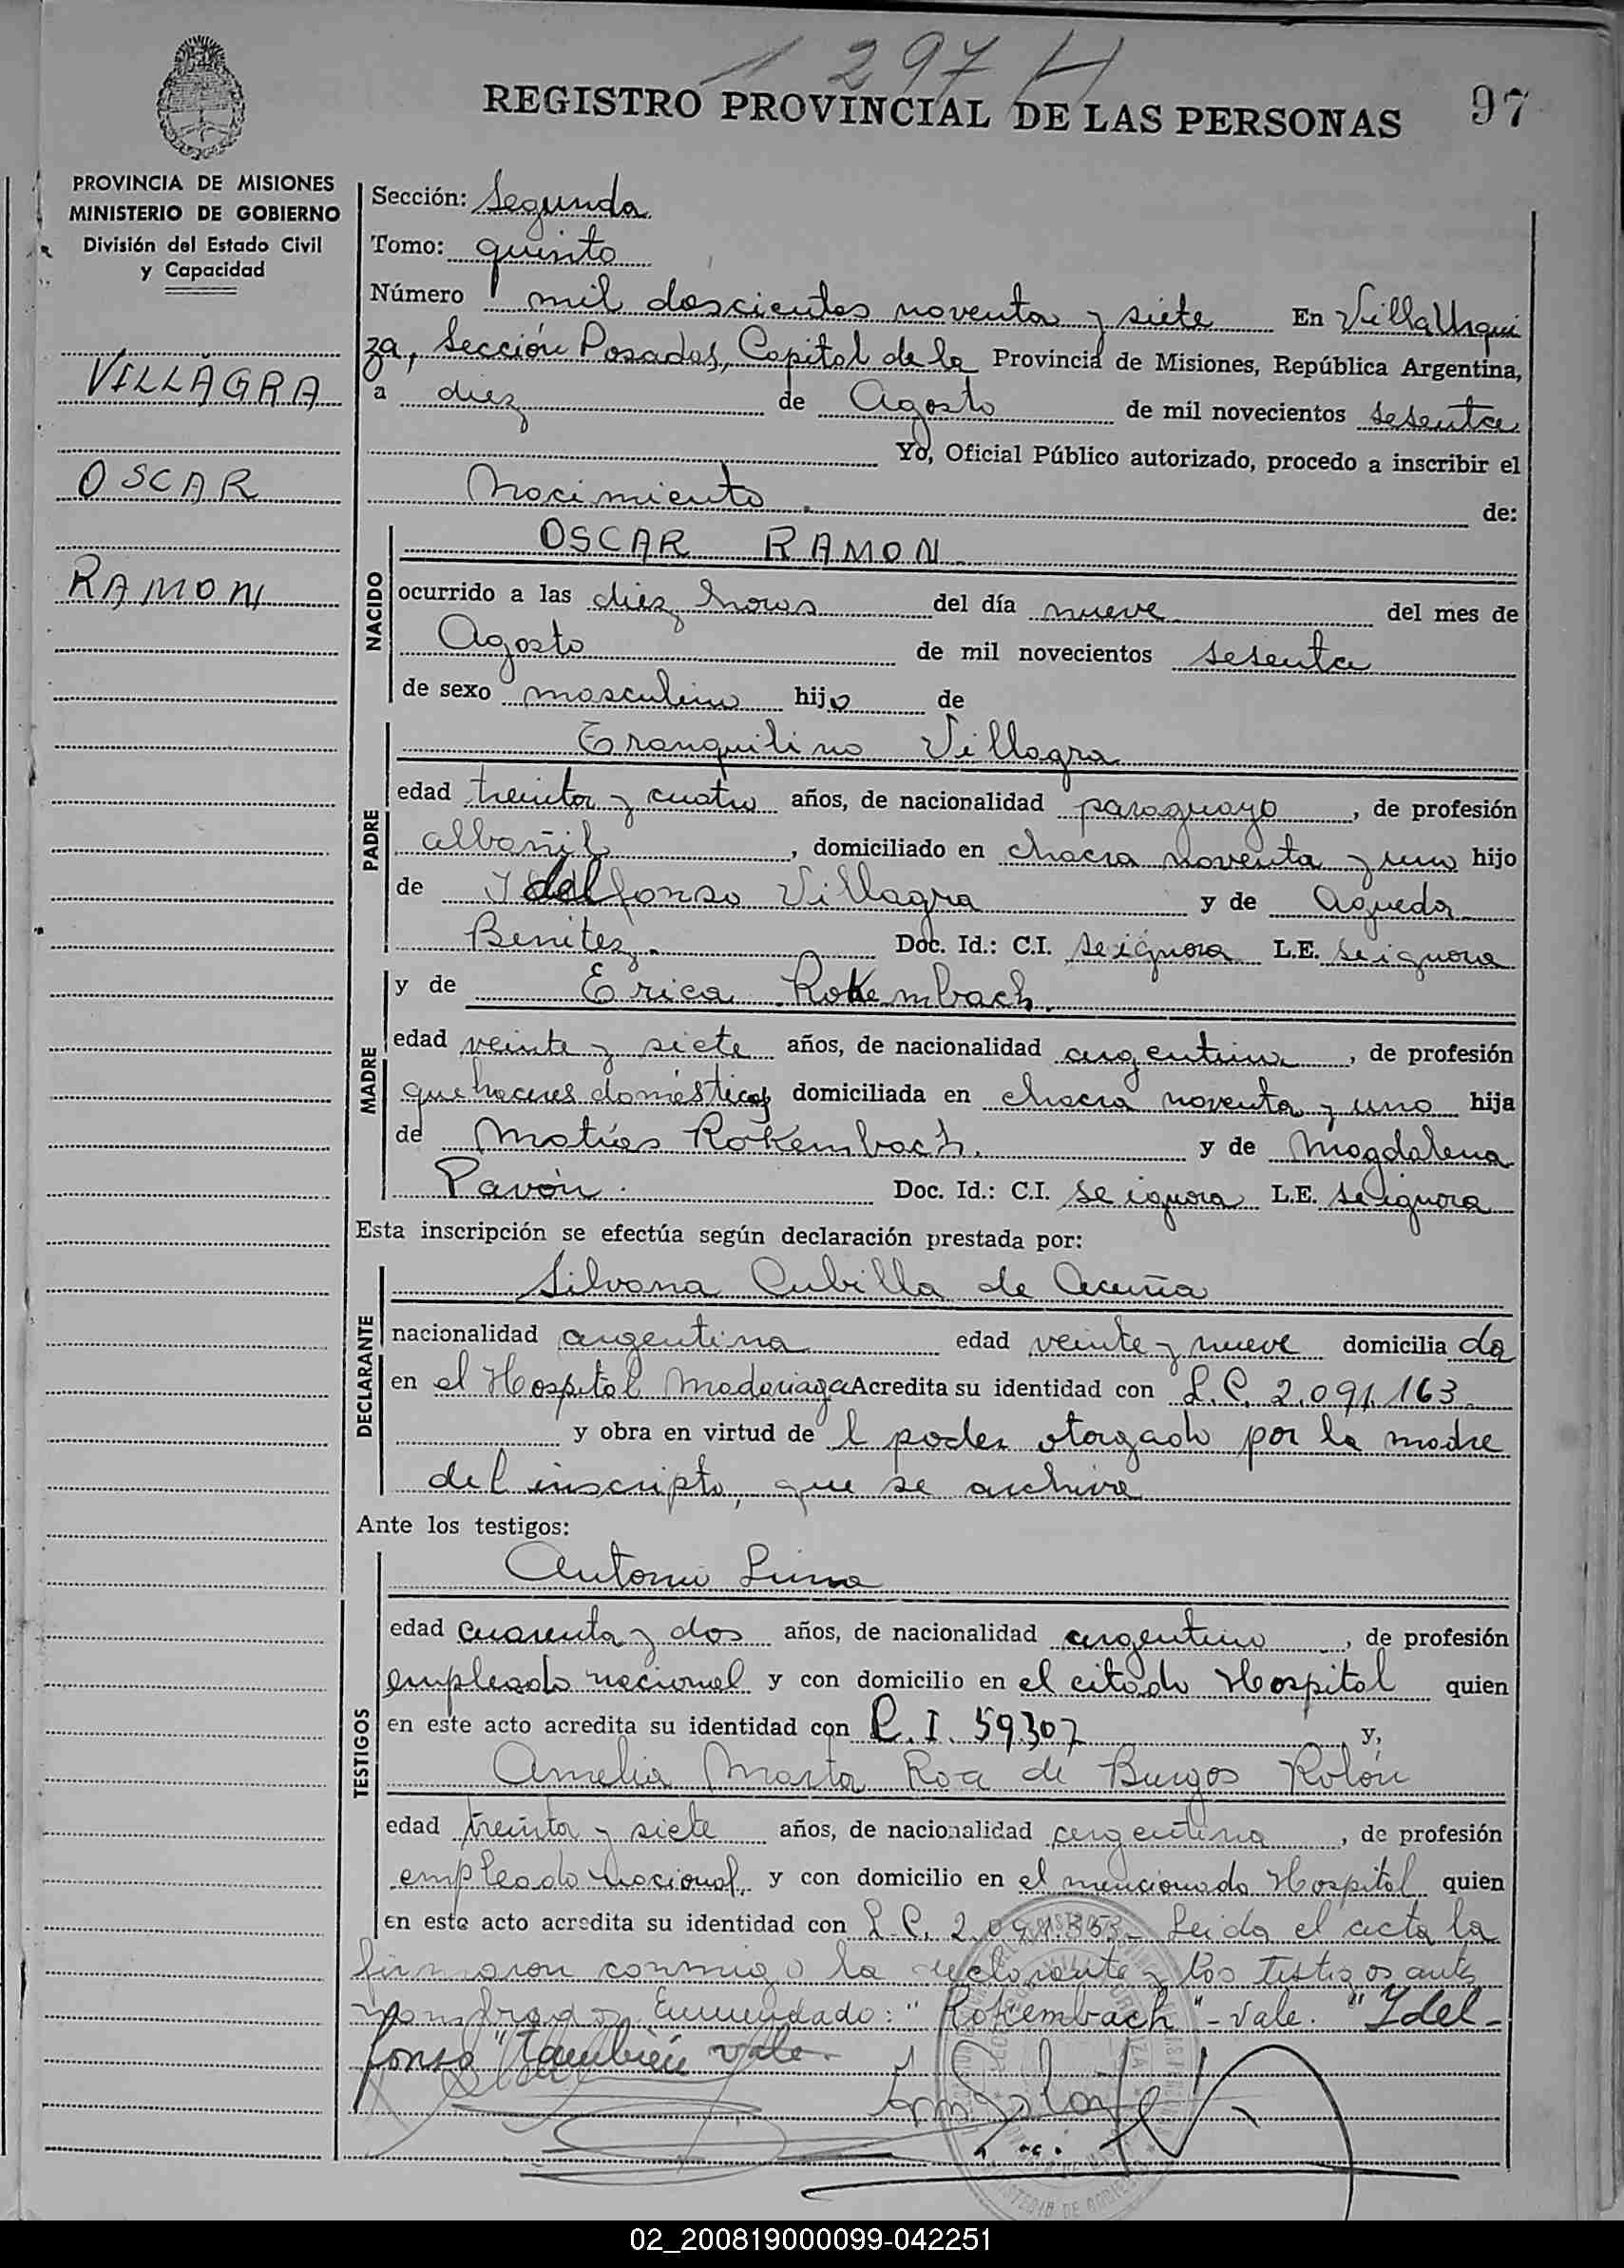 1297 H
REGISTRO PROVINCIAL DE LAS PERSONAS 97
PROVINCIA DE MISIONES
MINISTERIO DE GOBIERNO
División del Estado Civil
y Capacidad
VILLAGRA
OSCAR
RAMON
Sección: Segunda
Tomo: quinto
Número mil doscientos noventa y siete En Villa Urqui
za, Sección Posadas, Capital de la Provincia de Misiones, República Argentina,
a diez de Agosto de mil novecientos sesenta
Yo, Oficial Público autorizado, procedo a inscribir el
Nacimiento de:
NACIDO
OSCAR RAMON
ocurrido a las diez horas del día nueve del mes de
Agosto de mil novecientos sesenta
de sexo masculino hijo de
PADRE
Tranquilino Villagra
edad treinta y cuatro años, de nacionalidad paraguayo, de profesión
albañil, domiciliado en chacra noventa y uno hijo
de Ydelfonso Villagra y de Agueda
Benitez. Doc. Id.: C.I. se ignora L.E. se ignora
MADRE
y de Erica Rokembach.
edad veinte y siete años, de nacionalidad argentina, de profesión
quehaceres domésticos domiciliada en chacra noventa y uno hija
de Matías Rokembach. y de Magdalena
Pavón. Doc. Id.: C.I. se ignora L.E. se ignora
Esta inscripción se efectúa según declaración prestada por:
DECLARANTE
Silvana Cubilla de Acuña
nacionalidad argentina edad veinte y nueve domiciliada
en el Hospital Madariaga Acredita su identidad con L.C. 2.091.163
y obra en virtud del poder otorgado por la madre
del inscripto, que se archiva
Ante los testigos:
TESTIGOS
Antonio Lima
edad cuarenta y dos años, de nacionalidad argentino, de profesión
empleado nacional y con domicilio en el citado Hospital quien
en este acto acredita su identidad con C.I. 59.307 y,
Amelia Marta Roa de Burgos Rolón
edad treinta y siete años, de nacionalidad argentina, de profesión
empleado nacional, y con domicilio en el mencionado Hospital quien
en este acto acredita su identidad con L.C. 2.091.353- Leida el acta la
firmaron conmigo la declarante y los testigos antes
nombrados. Enmendado: "Rokembach" - vale. "Ydel-
fonso" también vale.
02_200819000099-042251